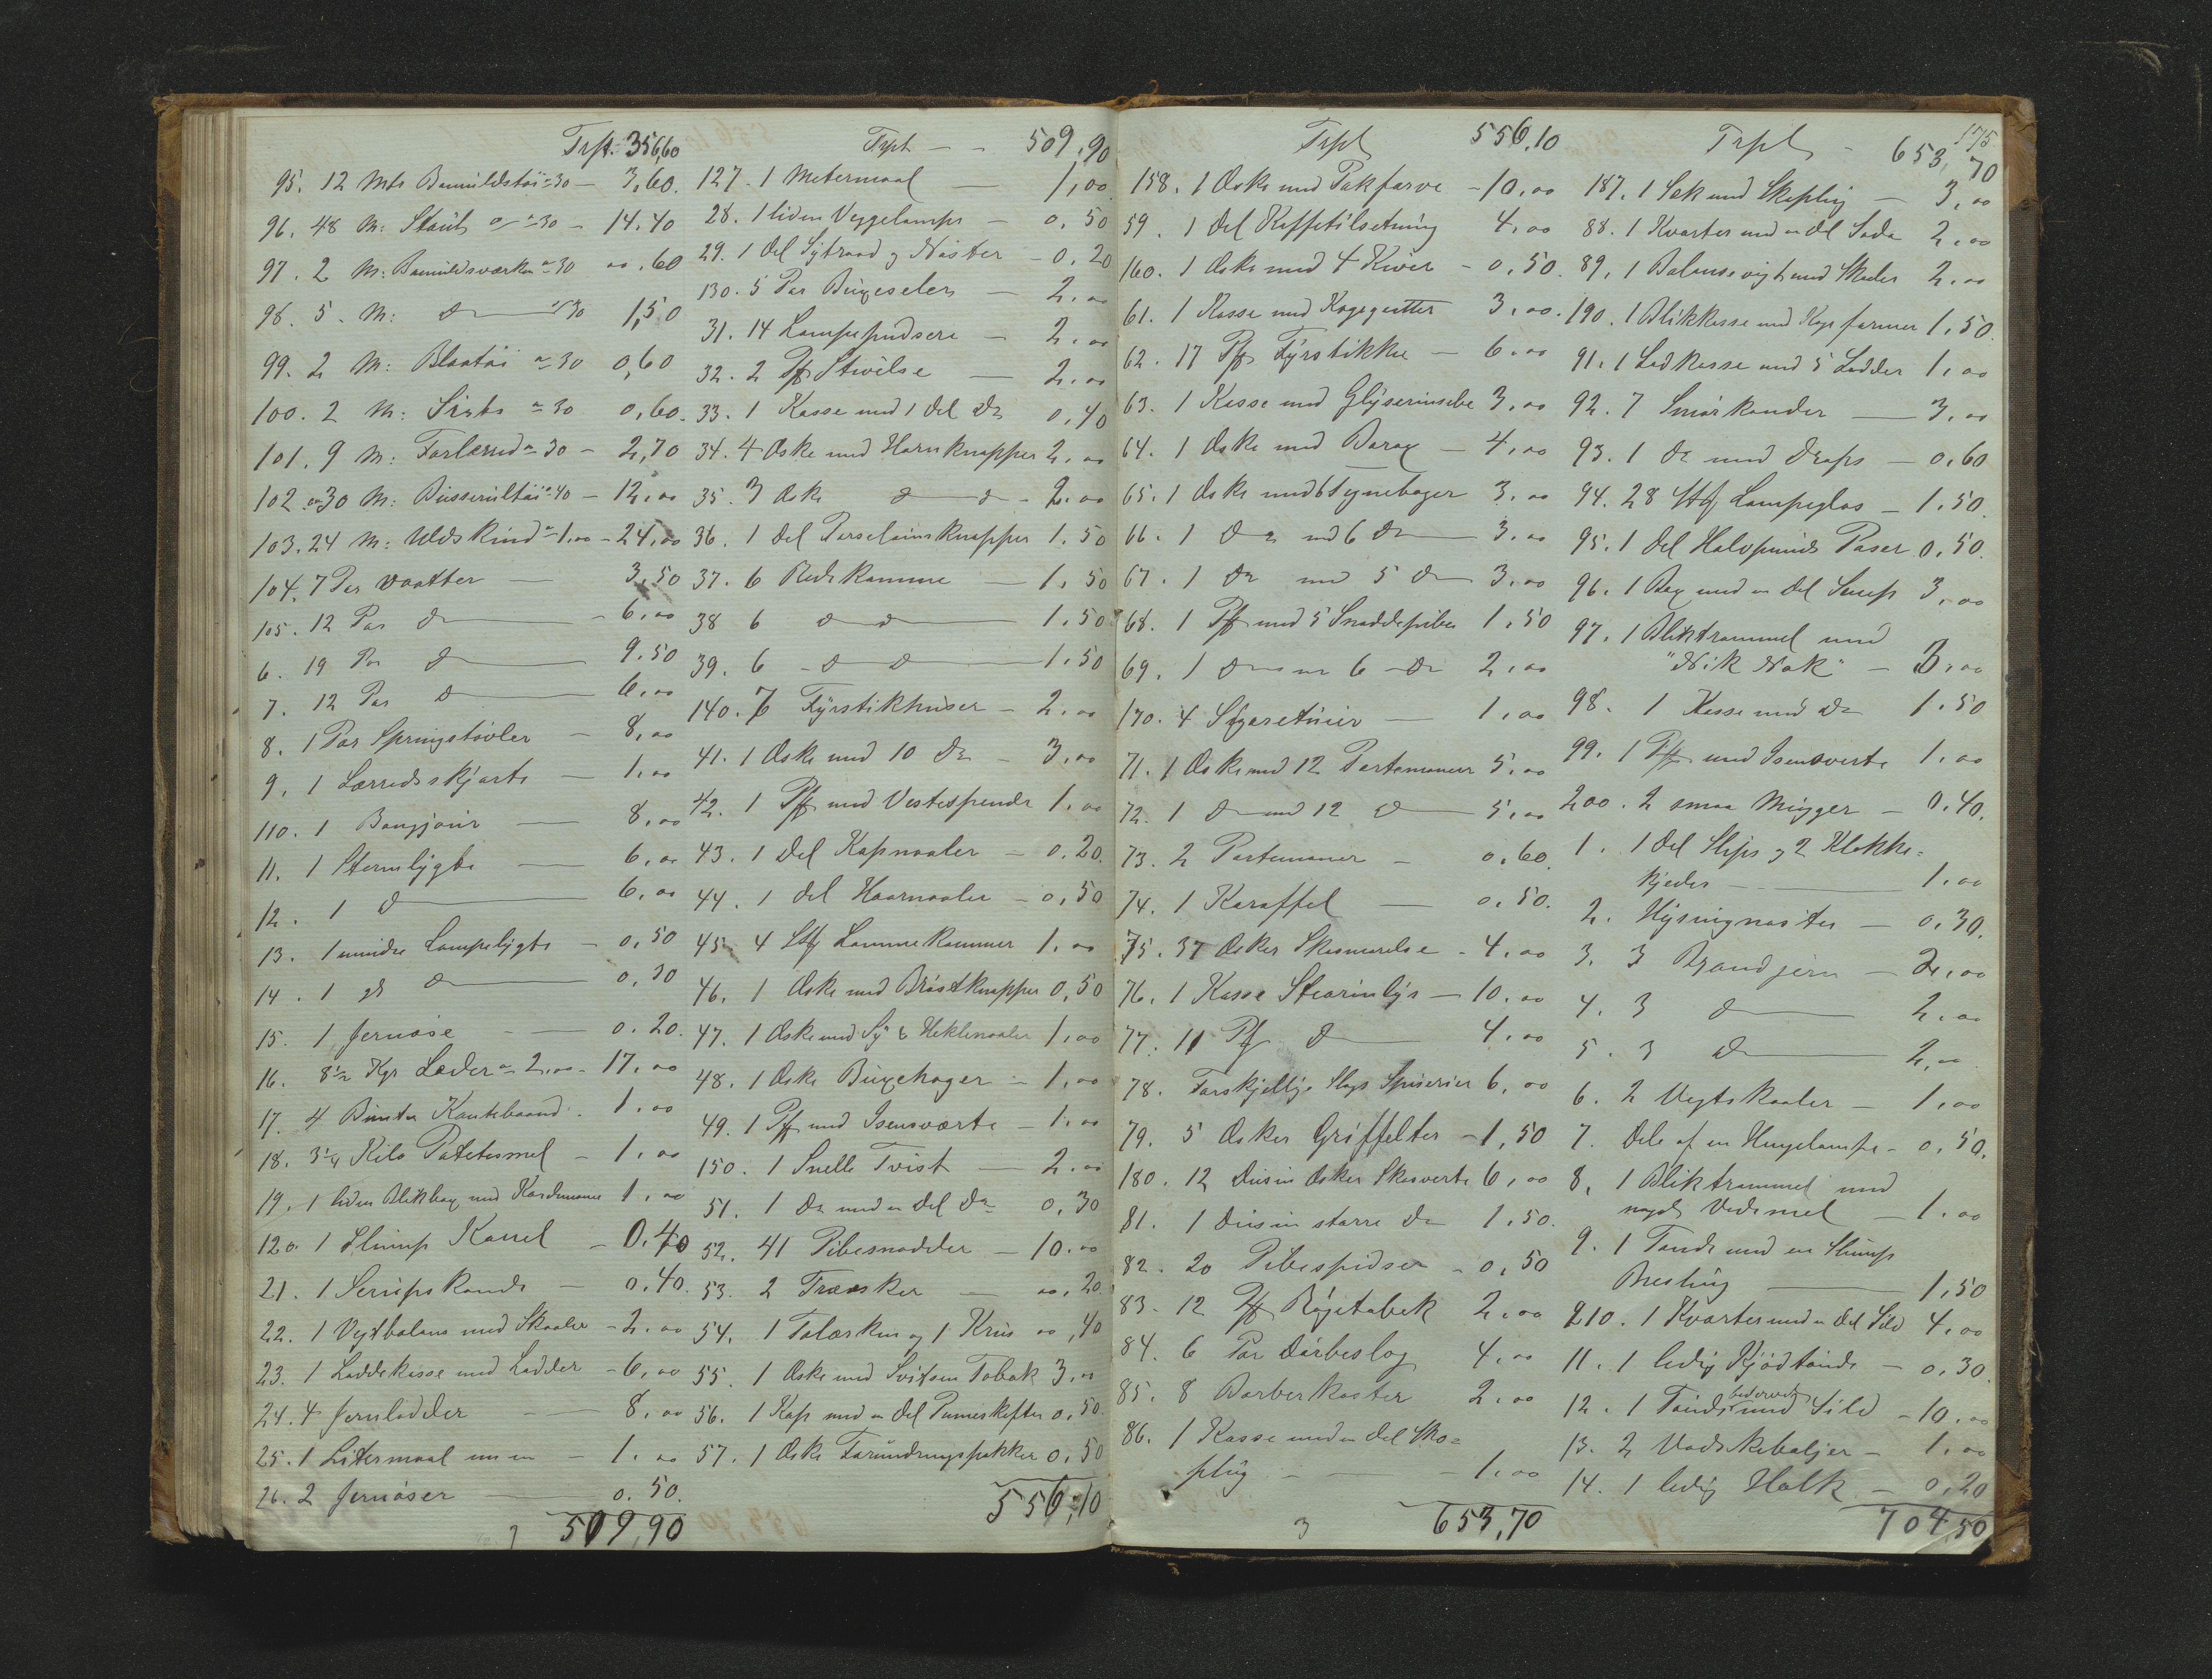 Trpt. 356,60
95. 12 Mtr Bomuldstøi a 30 – 3,60.
96. 48 M: Stouts a 30 – 14,40
97. 2 M: Bomuldsværken a 30 00,60
98. 5. M: do a 30 1,50
99. 2 M: Blaatøi a 30 0,60
100. 2 M: Sirts a 30 0,60.
101. 9 M: Forlærred a 30 – 2,70
102. 30 M: Busserultøi a 40 – 12,00
103. 24 M: Uldskind a 1,00 – 24,00
104. 7 Par vaatter – 3,50
105. 12 Par do – 6,00
6. 19 Par do 9.50
7. 12 Par do 6,00
8. 1 Par Springstøvler – 8,00
9. 1 Lærredsskjorte – 1,00
110. 1 Bonjour – 8,00
11. 1 Stormlygte – 6,00
12. 1 do 6,00
13. 1 mindre Lampelygte – 0,50
14. 1 do 0,30
15. 1 Jernøse – 0.20.
16. 8½ Kgr Læder a 2,00 – 17,00
17. 4 Bunter Kantebaand. 1,00
18. 3¼ Kilo Potetesmel – 1,00
19. 1 liden Blikbox med Kardemome 1,00
120. 1 Slump Kanel – 0.40
21. 1 Sirupskande – 0.40.
22. 1 Vegtbalans med Skaaler – 2.00
23. 1 Loddekasse med Lodder – 6,00
24. 4 Jernlodder – 8,00
25. 1 Litermaal – 1.00
26. 2 Jernøser 0.50.
509,90
Trpt – – 509,90
127. 1 Metermaal – 1,00
28. 1 liden Veggelampe – 0,50
29. 1 Del Sytraad og Nøster – 0,20
130. 5 Par Buxeseler – 2,00
31. 14 Lampepudsere – 2,00
32. 2 Pk Stivelse – 2,00
33. 1 Kasse med 1 del do 0,40
34. 4 Æske med Hornknapper 2,00
35. 3 Æske do – 2.00
36. 1 Del Porselainsknapper 1.50
37. 6 Redekamme – 1,50
38 6 do 1.50
39. 6 – do 1.50
140. 7 Fyrstikhuser – 2.00
41. 1 Æske med 10 do – 3,00
42. 1 Pk med Vestespender 1.00
43. 1 Del Kapnaaler – 0.20.
44. 1 del Haarnaaler – 0,50
45. 4 Stk Lommekammer 1.00
46. 1 Æske med Brystknapper 0,50
47. 1 Æske med Sy & Heklenaaler 1,00
48. 1 Æske Buxehager – 1,00
49. 1 Pk med Isensværte – 1.00
150. 1 Snelle Tvist – 2.00
51. 1 do med en del do 0,30
52. 41 Pibesnadder – 10.00
53. 2 Træesker – 00,20.
54. 1 Talærken og 1 Krus 00,40
55. 1 Æske med Svitsen Tobak 3,00
56. 1 Kop med en del Penneskefter 0,50.
57. 1 Æske Forundringspakker 0,50
556,10
Trpt 556,10
158. 1 Æske med Pakfarve – 10,00
59. 1 Del Kaffetilsetning 4,00
160. 1 Æske med 4 Kiver – 0,50.
61. 1 Kasse med Kagegutter 3,00.
62. 17 Pk Fyrstikker – 6,00
63. 1 Kasse med Glyserinsebe 3,00
64. 1 Æske med Borax – 4,00
65. 1 Æske med 6 Synebøger 3,00
66. 1 do med 6 do 3,00
67. 1 do med 5 do 3,00
68. 1 Pk med 5 Snaddepiber 1,50
69. 1 do 6 do 2,00
170. 4 Sigaretuier – 1,00
71. 1 Æske med 12 Portemoneer 5,00
72. 1 do med 12 do 5,00
73. 2 Portemoneer – 0,60.
74. 1 Karaffel – 0.50.
75. 37 Æsker Skosmørelse – 4,00
76. 1 Kasse Stearinlys – 10,00
77. 11 Pk do 4,00
78. Forskjellige Slags Spiserier 6,00
79. 5 Æsker Griffelter – 1,50
180. 12 Dusin Æsker Skosverte 6,00
81. 1 Dusin større do 1,50.
82. 20 Pibespidser – 0,50
83. 12 Pk Røgetobak 2,00
84. 6 Par Dørbeslag 4,00
85. 8 Barberkoster 2,00
86. 1 Kasse med en del Sko=
plug – – 1,00
3 653,70
175
Trpt – 653,70
187. 1 Sek med Skoplug – 3,00
88. 1 Kvarter med en del Soda 2,00
89. 1 Balansevigt med Skaaler 2,00
190. 1 Blikkasse med Kageformer 1,50.
91. 1 Lodkasse med 5 Lodder 1,00
92. 7 Smørkander – 3,00
93. 1 do med Drops – 0,60
94. 28 Stk Lampeglas – 1,50.
95. 1 Del Halvpunds Poser 0,50.
96. 1 Box med en Del Senep 3,00
97. 1 Bliktrommel med
"Nik Nak" – 3,00
98. 1 Kasse med do 1.50
99. 1 Pk med Isensverte 1,00
200. 2 smaa Mugger – 0.40.
1. 1 Del Slips og 2 Klokke=
kjeder – 1,00
2. Hysingnøster – 0.30.
3. 3 Brandjern – 2,00
4. 3 do 2,00
5. 3 do 2,00
6. 2 Vegtskaaler – 1,00
7. Dele af en Hengelampe – 0,50.
8. 1 Bliktrommel med
noget Vedemel – 1,00
9. 1 Tønde med en Slump
Bresling 1,50
210. 1 Kvarter med en del Sild 4,00
11. 1 ledig Kjødtønde – 0,30.
12. 1 Tønde med bedervet Sild – 10,00
13. 2 Vadskebaljer – 1,00
14. 1 ledig Holk – 0,20
704,50